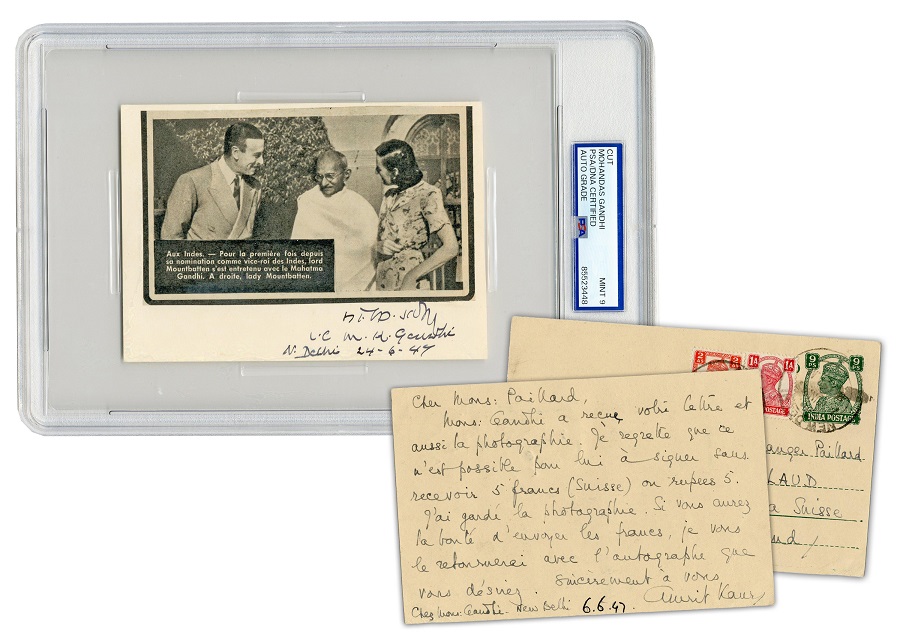 Aux Indes. — Pour la première fois depuis
sa nomination comme vice-roi des Indes, lord
Mountbatten s'est entretenu avec le Mahatma
Gandhi. A droite, lady Mountbatten.
i.e M. K. Gandhi
N. Delhi 24-6-47
CUT
MOHANDAS GANDHI
PSA/DNA CERTIFIED
AUTO GRADE
MINT 9
PSA
85523448
2
1A
1A
9
PS
9
PS
POSTAGE
INDIA POSTAGE
Paillard
a Suisse
Cher Mons: Paillard,
Mons: Gandhi a reçue votre lettre et
aussi la photographie. Je regrette que ce
n'est possible pour lui à signer sans
recevoir 5 francs (Suisse) ou rupees 5.
J'ai gardé la photographie. Si vous aurez
la bonté d'envoyer les francs, je vous
le retournerai avec l'autographe que
vous désirez. Sincèrement à vous,
Amrit Kaur
Chez Mons: Gandhi. New Delhi 6.6.47.